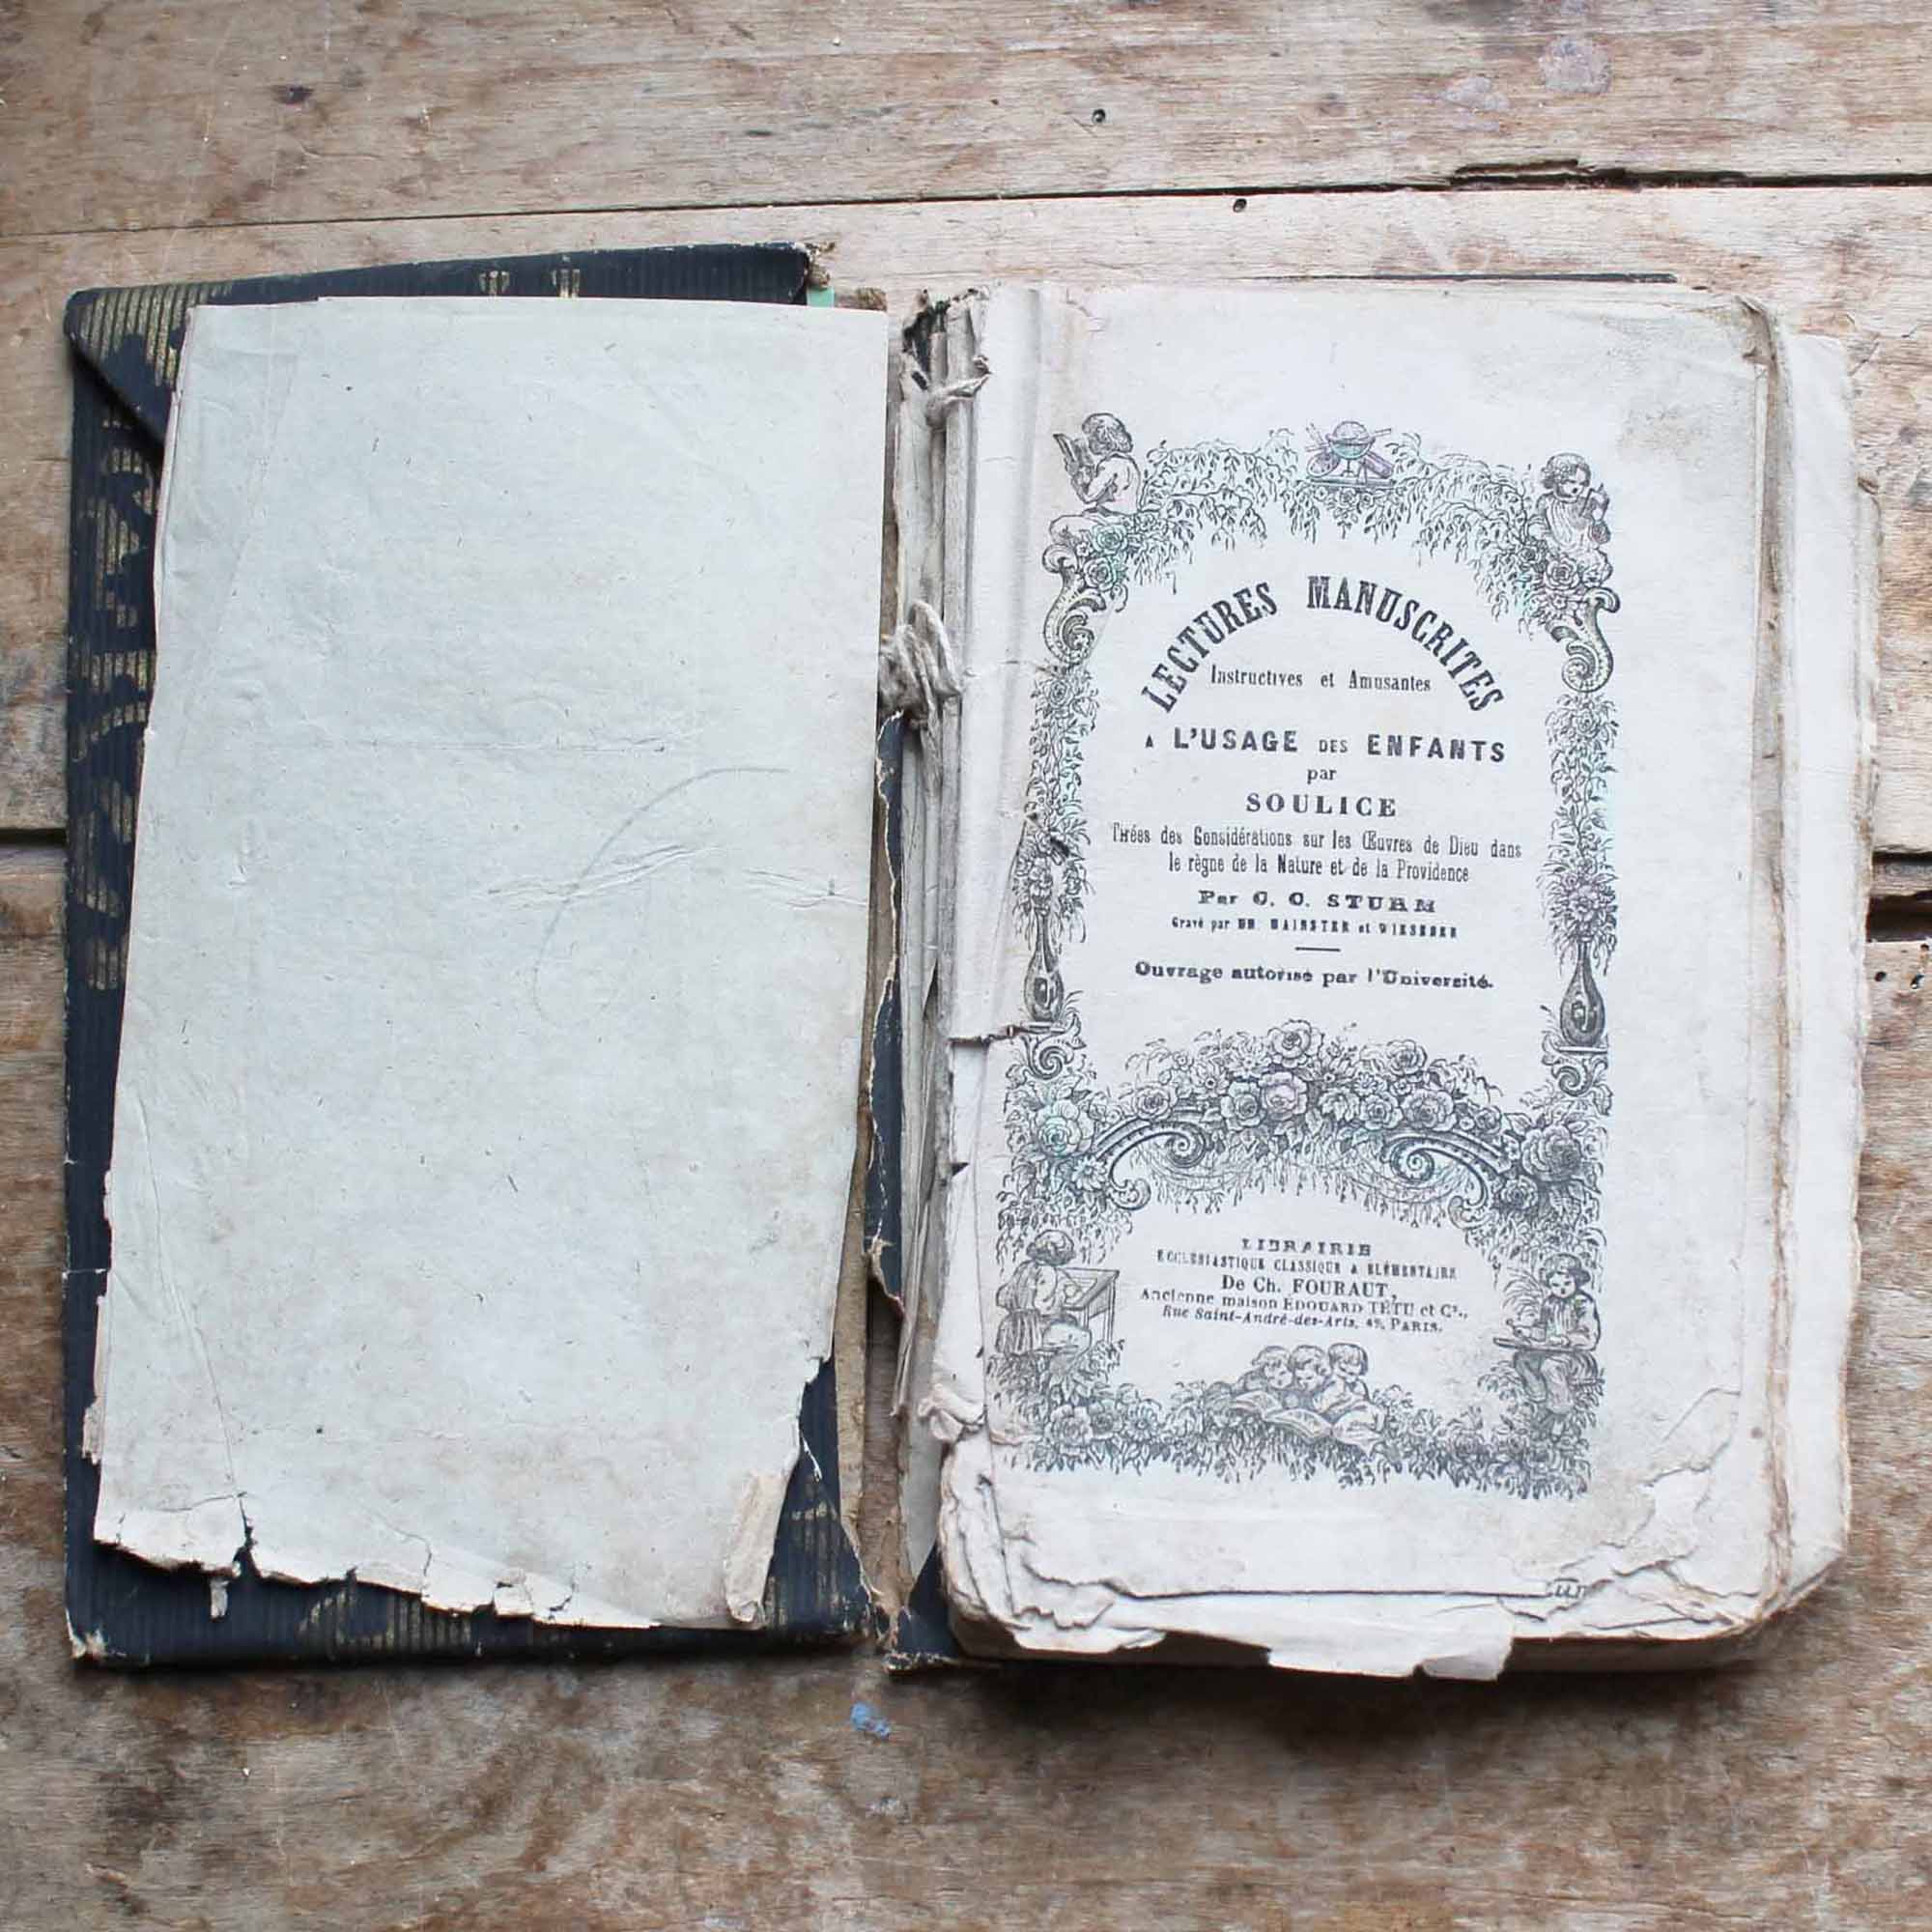 LECTURES MANUSCRITES
Instructives et Amusantes
A L'USAGE DES ENFANTS
par
SOULICE
Tirées des Considérations sur les Œuvres de Dieu dans
le règne de la Nature et de la Providence
Par C. C. STURM
Gravé par et
Ouvrage autorisé par l'Université.
LIBRAIRIE
ECCLESIASTIQUE CLASSIQUE & ELÉMENTAIRE
De Ch. FOURAUT,
Ancienne maison EDOUARD TÉTU et Cie.,
Rue Saint-André-des-Arts, PARIS.